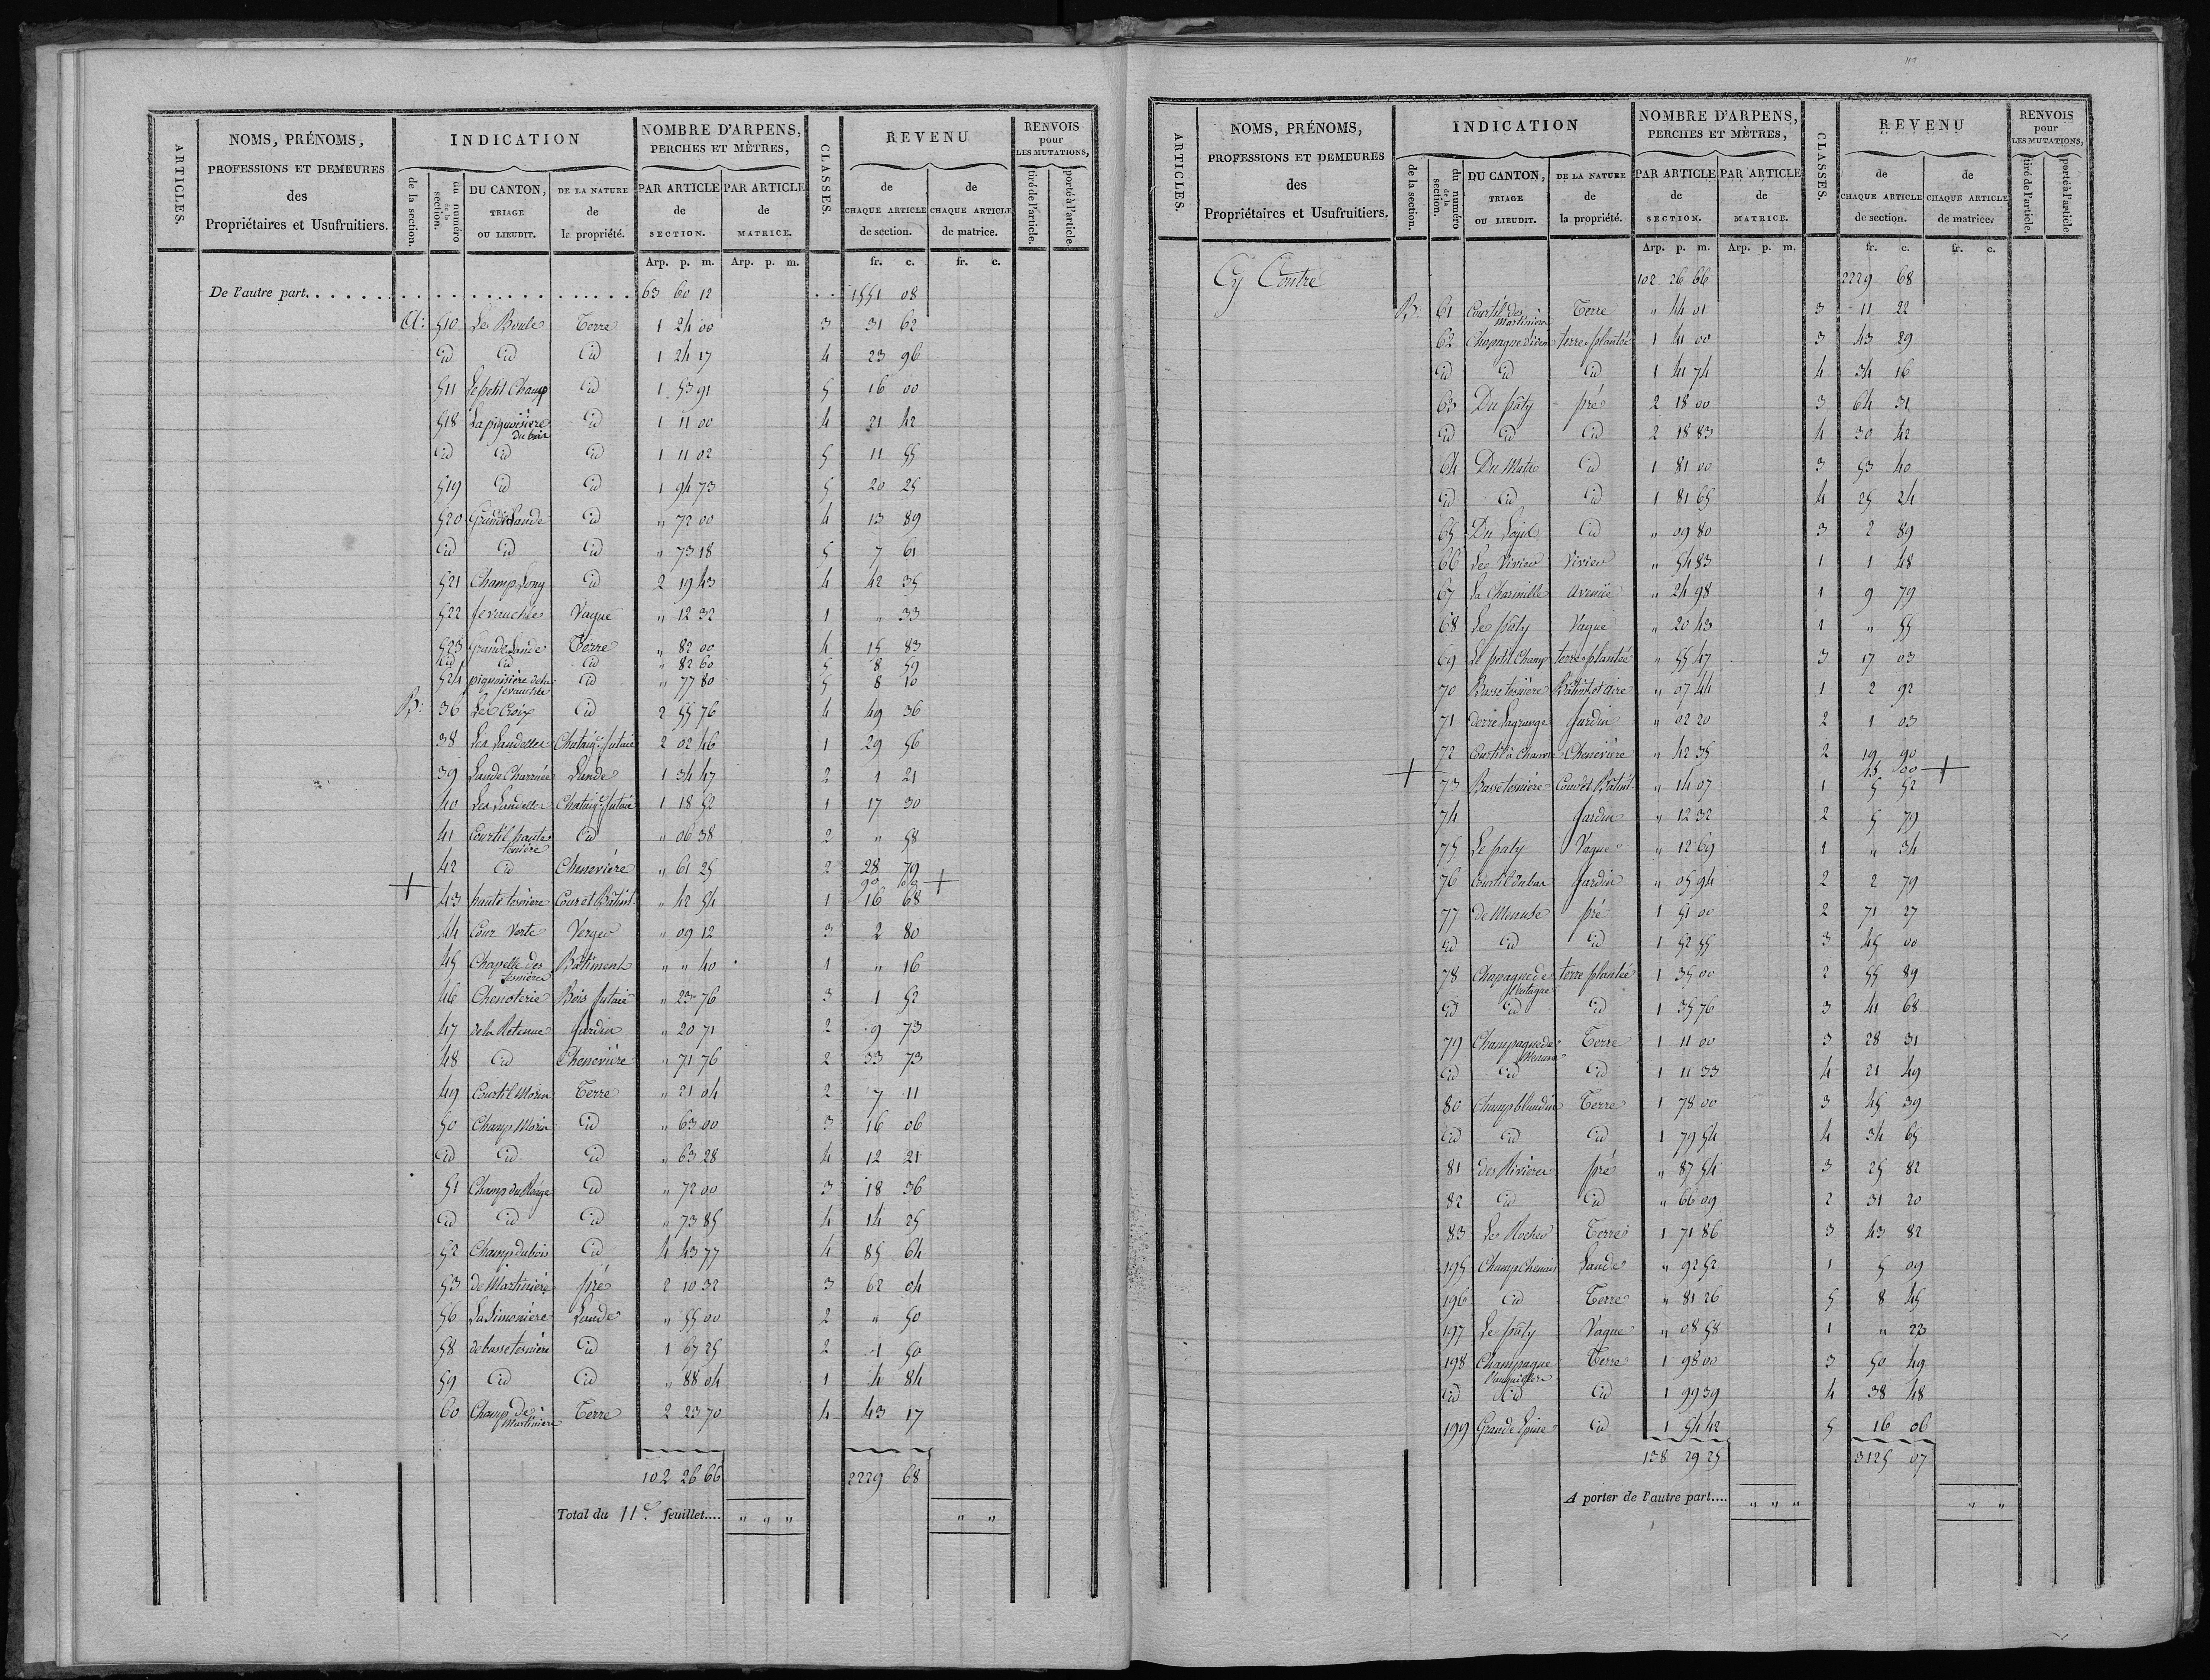 ARTICLES.
NOMS, PRÉNOMS,
PROFESSIONS ET DEMEURES
des
Propriétaires et Usufruitiers.
INDICATION
de la section.
du numéro de la section.
DU CANTON,
TRIAGE
OU LIEUDIT.
DE LA NATURE
de
la propriété.
NOMBRE D'ARPENS,
PERCHES ET MÈTRES,
PAR ARTICLE
de
SECTION.
PAR ARTICLE
de
MATRICE.
CLASSES.
REVENU
de
CHAQUE ARTICLE
de section.
de
CHAQUE ARTICLE
de matrice.
RENVOIS
pour
LES MUTATIONS,
tiré de l'article.
porté à l'article.
Arp. p. m. Arp. p. m. fr. c. fr. c.
De l'autre part. . . . . . 63 60 12 1551 08
A: 510 Le Boule Terre 1 24 00 3 31 62
id id id 1 24 17 4 23 96
511 Le petit Champ id 1 53 91 5 16 00
518 La pignoisiere du bois id 1 11 00 4 21 42
id id id 1 11 02 5 11 55
519 id id 1 94 73 5 20 25
520 Grande Lande id " 72 00 4 13 89
id id id " 73 18 5 7 61
521 Champ Long id 2 19 43 4 42 35
522 Jevauchée Vague " 12 32 1 " 33
523 Grande Lande Terre " 82 00 4 15 83
id id id " 82 60 5 8 59
524 pignoisiere de la jevauchée id " 77 80 5 8 10
B: 36 Le Croix id 2 55 76 4 49 36
38 Les Landelles Chataig.r futaie 2 02 46 1 29 56
39 Lande Charruée Lande 1 34 47 2 1 21
40 Les Landelles Chataig.r futaie 1 18 52 1 17 30
41 Courtil haute tesniere id " 06 38 2 " 58
42 id Chenevière " 61 25 2 28 79
90 00
+ 43 haute tesniere Cour et Bâtim.t " 42 54 1 16 68 +
44 Cour Verte Verger " 09 12 3 2 80
45 Chapelle des tesnieres Bâtiment " " 40 1 " 16
46 Chenoterie Bois futaie " 23 76 3 1 52
47 de la Retenue Jardin " 20 71 2 9 73
48 id Chenevière " 71 76 2 33 73
49 Courtil Morin Terre " 21 04 2 7 11
50 Champ Morin id " 63 00 3 16 06
id id id " 63 28 4 12 21
51 Champ du id " 72 00 3 18 36
id id id " 73 85 4 14 25
52 Champ du bois id 4 43 77 4 85 64
53 de Martiniere pré 2 10 32 3 62 04
56 La Simoniere Lande " 55 00 2 " 50
58 de basse tesniere id 1 67 25 2 1 50
59 id id " 88 04 1 4 84
60 Champ de Martiniere Terre 2 23 70 4 43 17
102 26 66 2229 68
Total du 11e. feuillet.... " " " " "
ARTICLES.
NOMS, PRÉNOMS,
PROFESSIONS ET DEMEURES
des
Propriétaires et Usufruitiers.
INDICATION
de la section.
du numéro de la section.
DU CANTON,
TRIAGE
OU LIEUDIT.
DE LA NATURE
de
la propriété.
NOMBRE D'ARPENS,
PERCHES ET MÈTRES,
PAR ARTICLE
de
SECTION.
PAR ARTICLE
de
MATRICE.
CLASSES.
REVENU
de
CHAQUE ARTICLE
de section.
de
CHAQUE ARTICLE
de matrice.
RENVOIS
pour
LES MUTATIONS,
tiré de l'article.
porté à l'article.
Arp. p. m. Arp. p. m. fr. c. fr. c.
Cy Contre 102 26 66 2229 68
B: 61 Courtil des Martiniere Terre " 44 01 3 11 22
62 terre plantée 1 41 00 3 43 29
id id id 1 41 74 4 34 16
63 Du pâty pré 2 18 00 3 64 31
id id id 2 18 83 4 30 42
64 Du id 1 81 00 3 53 40
id id id 1 81 65 4 25 24
65 Du id " 09 80 3 2 89
66 Le Vivier Vivier " 54 83 1 1 48
67 La Charmille avenue " 24 98 1 9 79
68 Le pâty Vague " 20 43 1 " 55
69 Le petit Champ terre plantée " 55 47 3 17 03
70 Basse tesniere Bâtim.t et aire " 07 44 1 2 92
71 derrie Lagrange Jardin " 02 20 2 1 03
72 Courtil à Chanvre Chenevière " 42 35 2 19 90
45 00
+ 73 Basse tesniere Cour et Bâtim.t " 14 07 1 5 52 +
74 Jardin " 12 32 2 5 79
75 Le paty Vague " 12 69 1 " 34
76 Courtil du bas Jardin " 05 94 2 2 79
77 de Menuse pré 1 51 00 2 71 27
id id id 1 52 55 3 45 00
78 Chapagne de terre plantée 1 35 00 2 55 89
id id id 1 35 76 3 41 68
79 Champagne de Terre 1 11 00 3 28 31
id id id 1 11 33 4 21 49
80 Champ blandin Terre 1 78 00 3 45 39
id id id 1 79 54 4 34 65
81 des Rivieres pré " 87 54 3 25 82
82 id id " 66 09 2 31 20
83 Le Rocher Terre 1 71 86 3 43 82
195 Champ Chenais Lande " 92 52 1 5 09
196 id Terre " 81 26 5 8 45
197 Le pâty Vague " 08 58 1 " 23
198 Champagne Terre 1 98 00 3 50 49
id id id 1 99 39 4 38 48
199 Grande Epine id 1 54 42 5 16 06
138 29 25 3125 07
A porter de l'autre part.... " " " " "